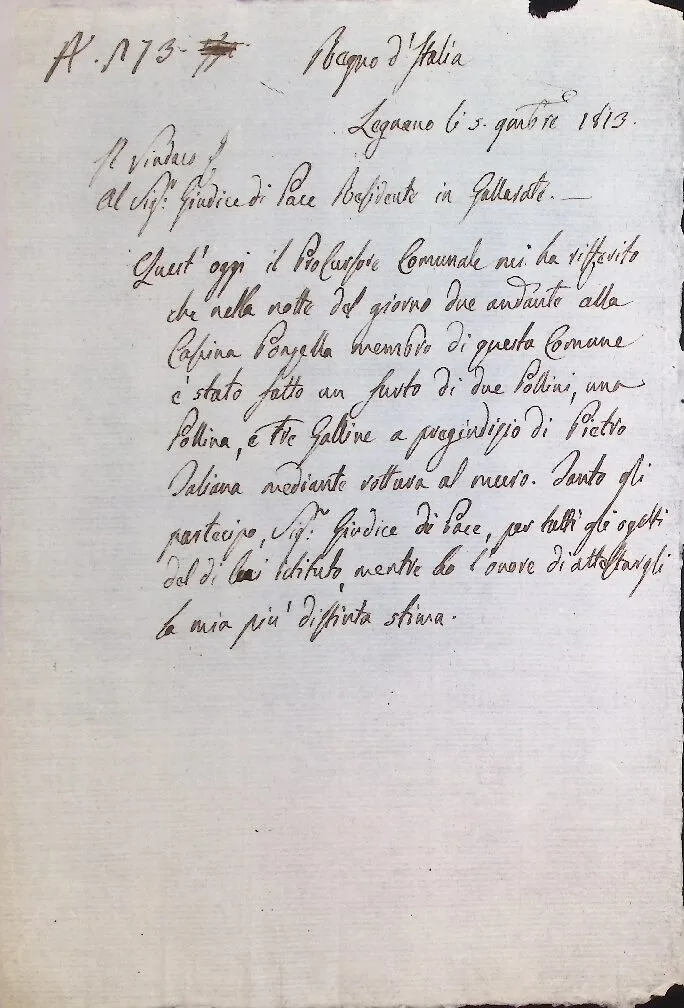 N. 173.
Regno d'Italia
Legnano li 5. 9mbre 1813.
Il Sindaco
Al Sigr. Giudice di Pace Residente in Gallarate. —
Quest'oggi il ProCursore Comunale mi ha rifferito
che nella notte del giorno due andante alla
Cassina Ponzella membro di questa Comune
è stato fatto un furto di due Pollini, una
Pollina, e tre Galline a pregiudizio di Pietro
Taliana mediante rottura al muro. Tanto gli
partecipo, Sigr. Giudice di Pace, per tutti gli ogetti
del di lei istituto, mentre ho l'onore di attestargli
la mia più distinta stima.